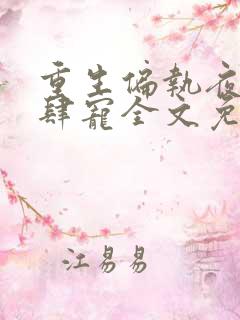 重生偏執夜
肆寵全文免
江易易